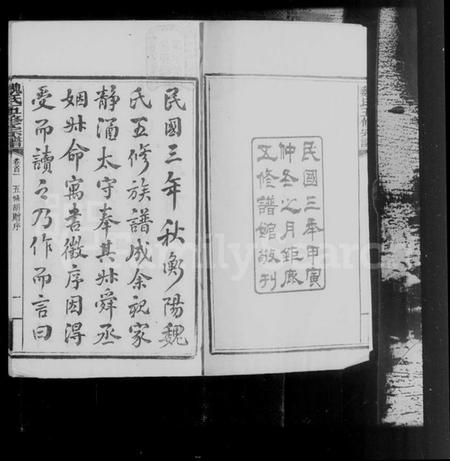 民國三年甲寅
仲冬之月鉅鹿
五修譜館敬刊
民國三年秋衡陽魏
氏五修族譜成余祝家
静涵太守奉其叔舜丞
姻叔命寓書徵序因得
受而讀之乃作而言曰
魏氏五修宗譜
卷首
五修胡贈序
一
FamilySearch